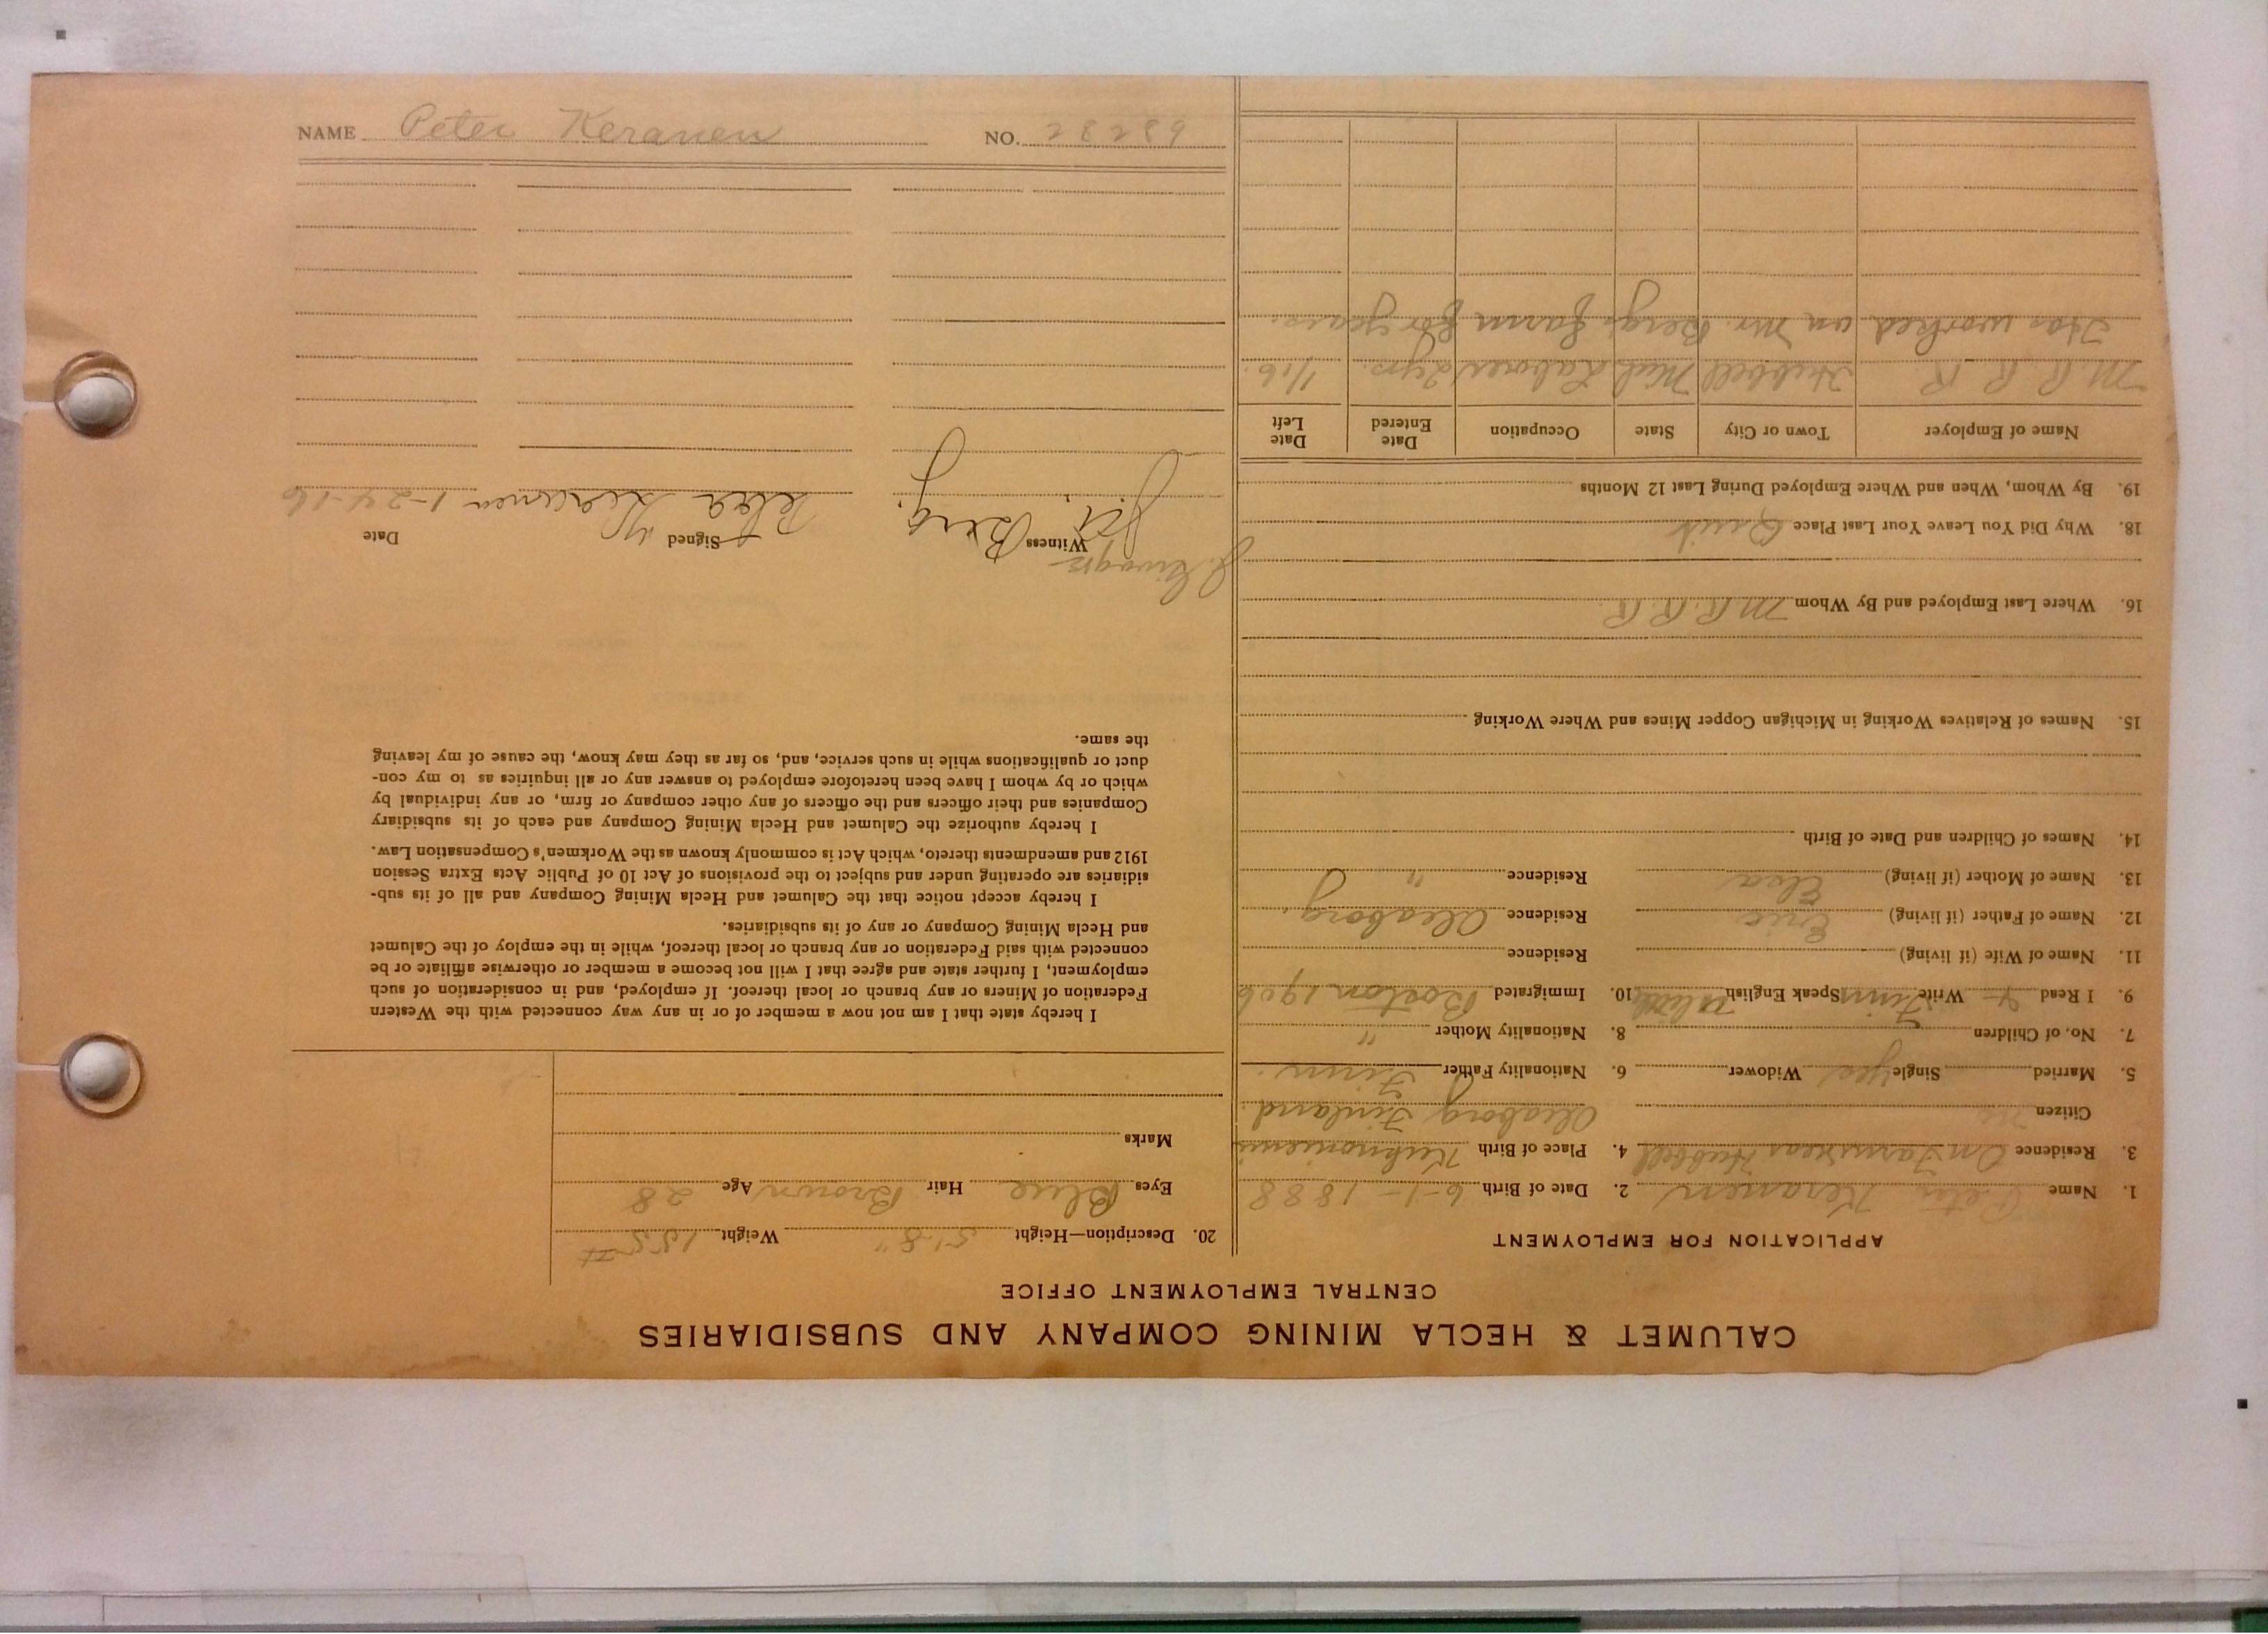 CALUMET & HECLA MINING COMPANY AND SUBSIDIARIES
CENTRAL EMPLOYMENT OFFICE
APPLICATION FOR EMPLOYMENT
1. Name Peter Keranen 2. Date of Birth 6-1-1888
3. Residence On Farm near Hubbell 4. Place of Birth
Citizen Uleaborg Finland.
5. Married Single yes Widower 6. Nationality Father Finn.
7. No. of Children 8. Nationality Mother "
9. I Read Write Finn Speak English 10. Immigrated Boston 1906
11. Name of Wife (if living) Residence
12. Name of Father (if living) Eric Residence Uleaborg.
13. Name of Mother (if living) Elsa Residence "
14. Names of Children and Date of Birth
15. Names of Relatives Working in Michigan Copper Mines and Where Working
16. Where Last Employed and By Whom M.R.R.R.
18. Why Did You Leave Your Last Place Quit
19. By Whom, When and Where Employed During Last 12 Months
Name of Employer Town or City State Occupation Date Entered Date Left
M.R.R.R Hubbell Mich Laborer 2 yrs. 1/16.
Has worked on Mr. Bergs farm for years.
20. Description—Height 5'-8" Weight 155#
Eyes Blue Hair Brown Age 28
Marks
I hereby state that I am not now a member of or in any way connected with the Western
Federation of Miners or any branch or local thereof. If employed, and in consideration of such
employment, I further state and agree that I will not become a member or otherwise affiliate or be
connected with said Federation or any branch or local thereof, while in the employ of the Calumet
and Hecla Mining Company or any of its subsidiaries.
I hereby accept notice that the Calumet and Hecla Mining Company and all of its sub-
sidiaries are operating under and subject to the provisions of Act 10 of Public Acts Extra Session
1912 and amendments thereto, which Act is commonly known as the Workmen's Compensation Law.
I hereby authorize the Calumet and Hecla Mining Company and each of its subsidiary
Companies and their officers and the officers of any other company or firm, or any individual by
which or by whom I have been heretofore employed to answer any or all inquiries as to my con-
duct or qualifications while in such service, and, so far as they may know, the cause of my leaving
the same.
Witness Signed Date
Berg. Keranen 1-24-16
NAME Peter Keranen NO. 28289